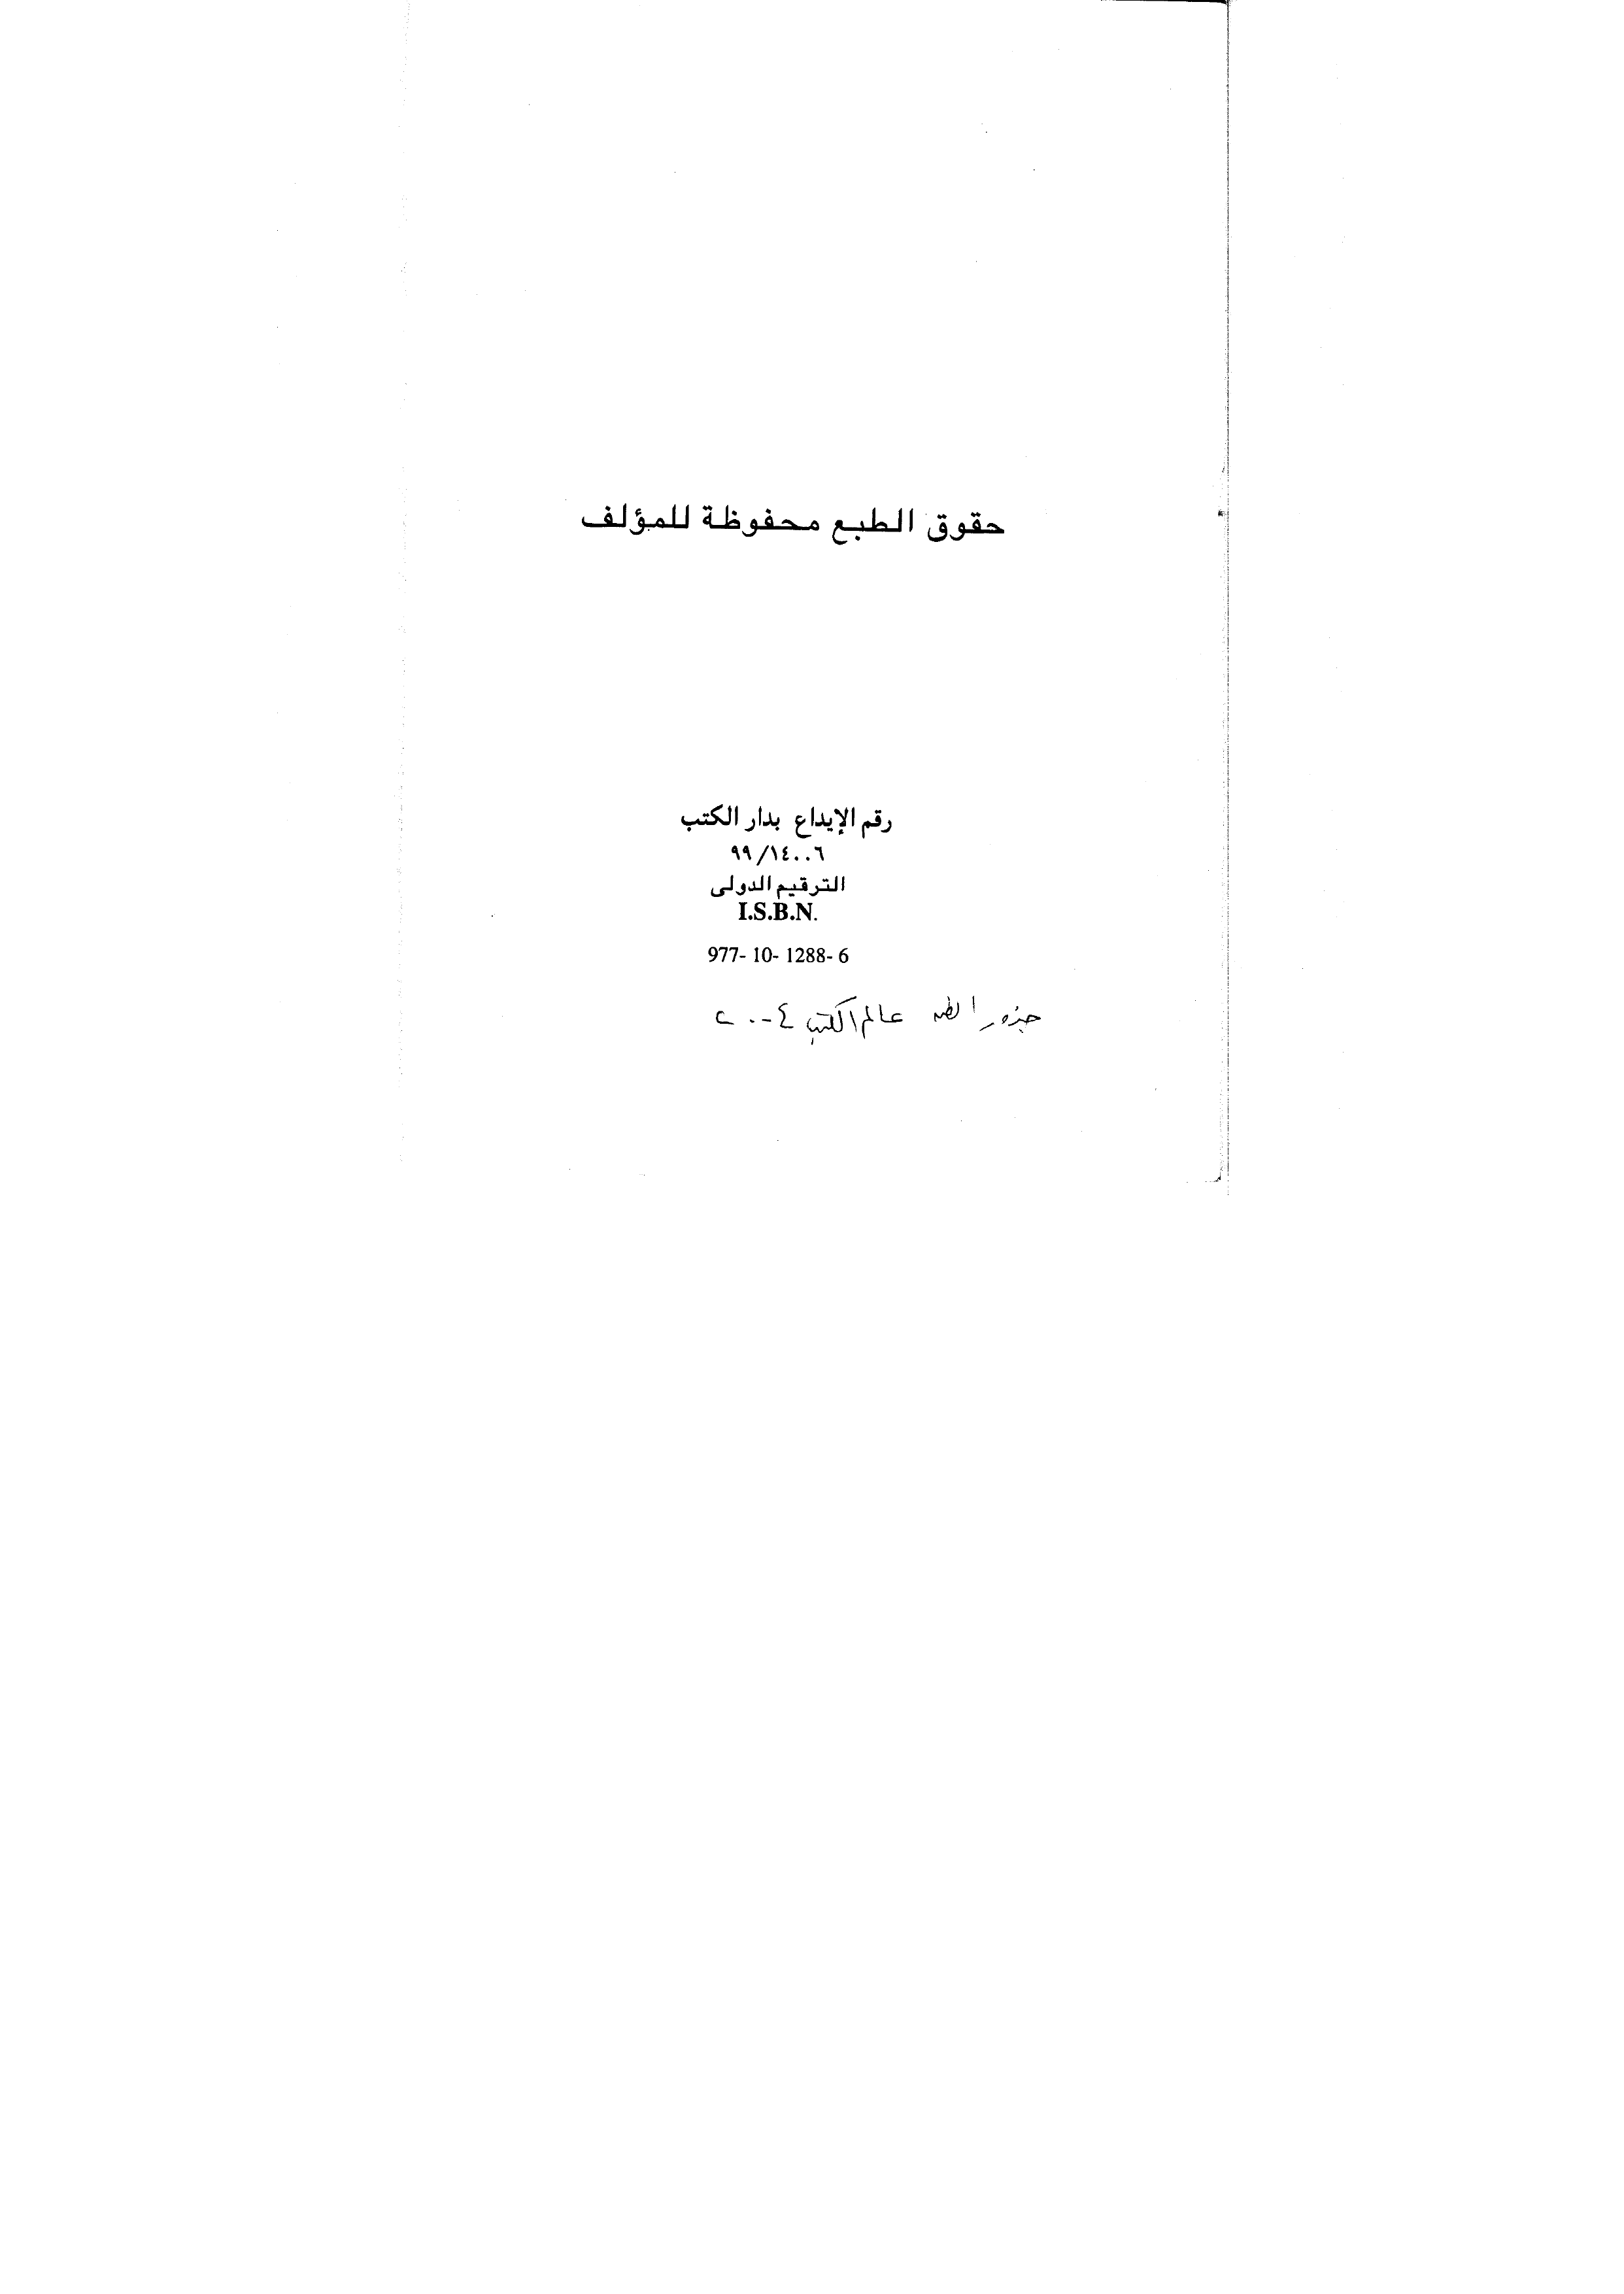 حقوق الطبع محفوظة للمؤلف
رقم الإيداع بدار الكتب
٩٩/١٤٠٠٦
الترقيم الدولى
I.S.B.N.
977- 10- 1288- 6
عالم الكتب ٢٠٠٤